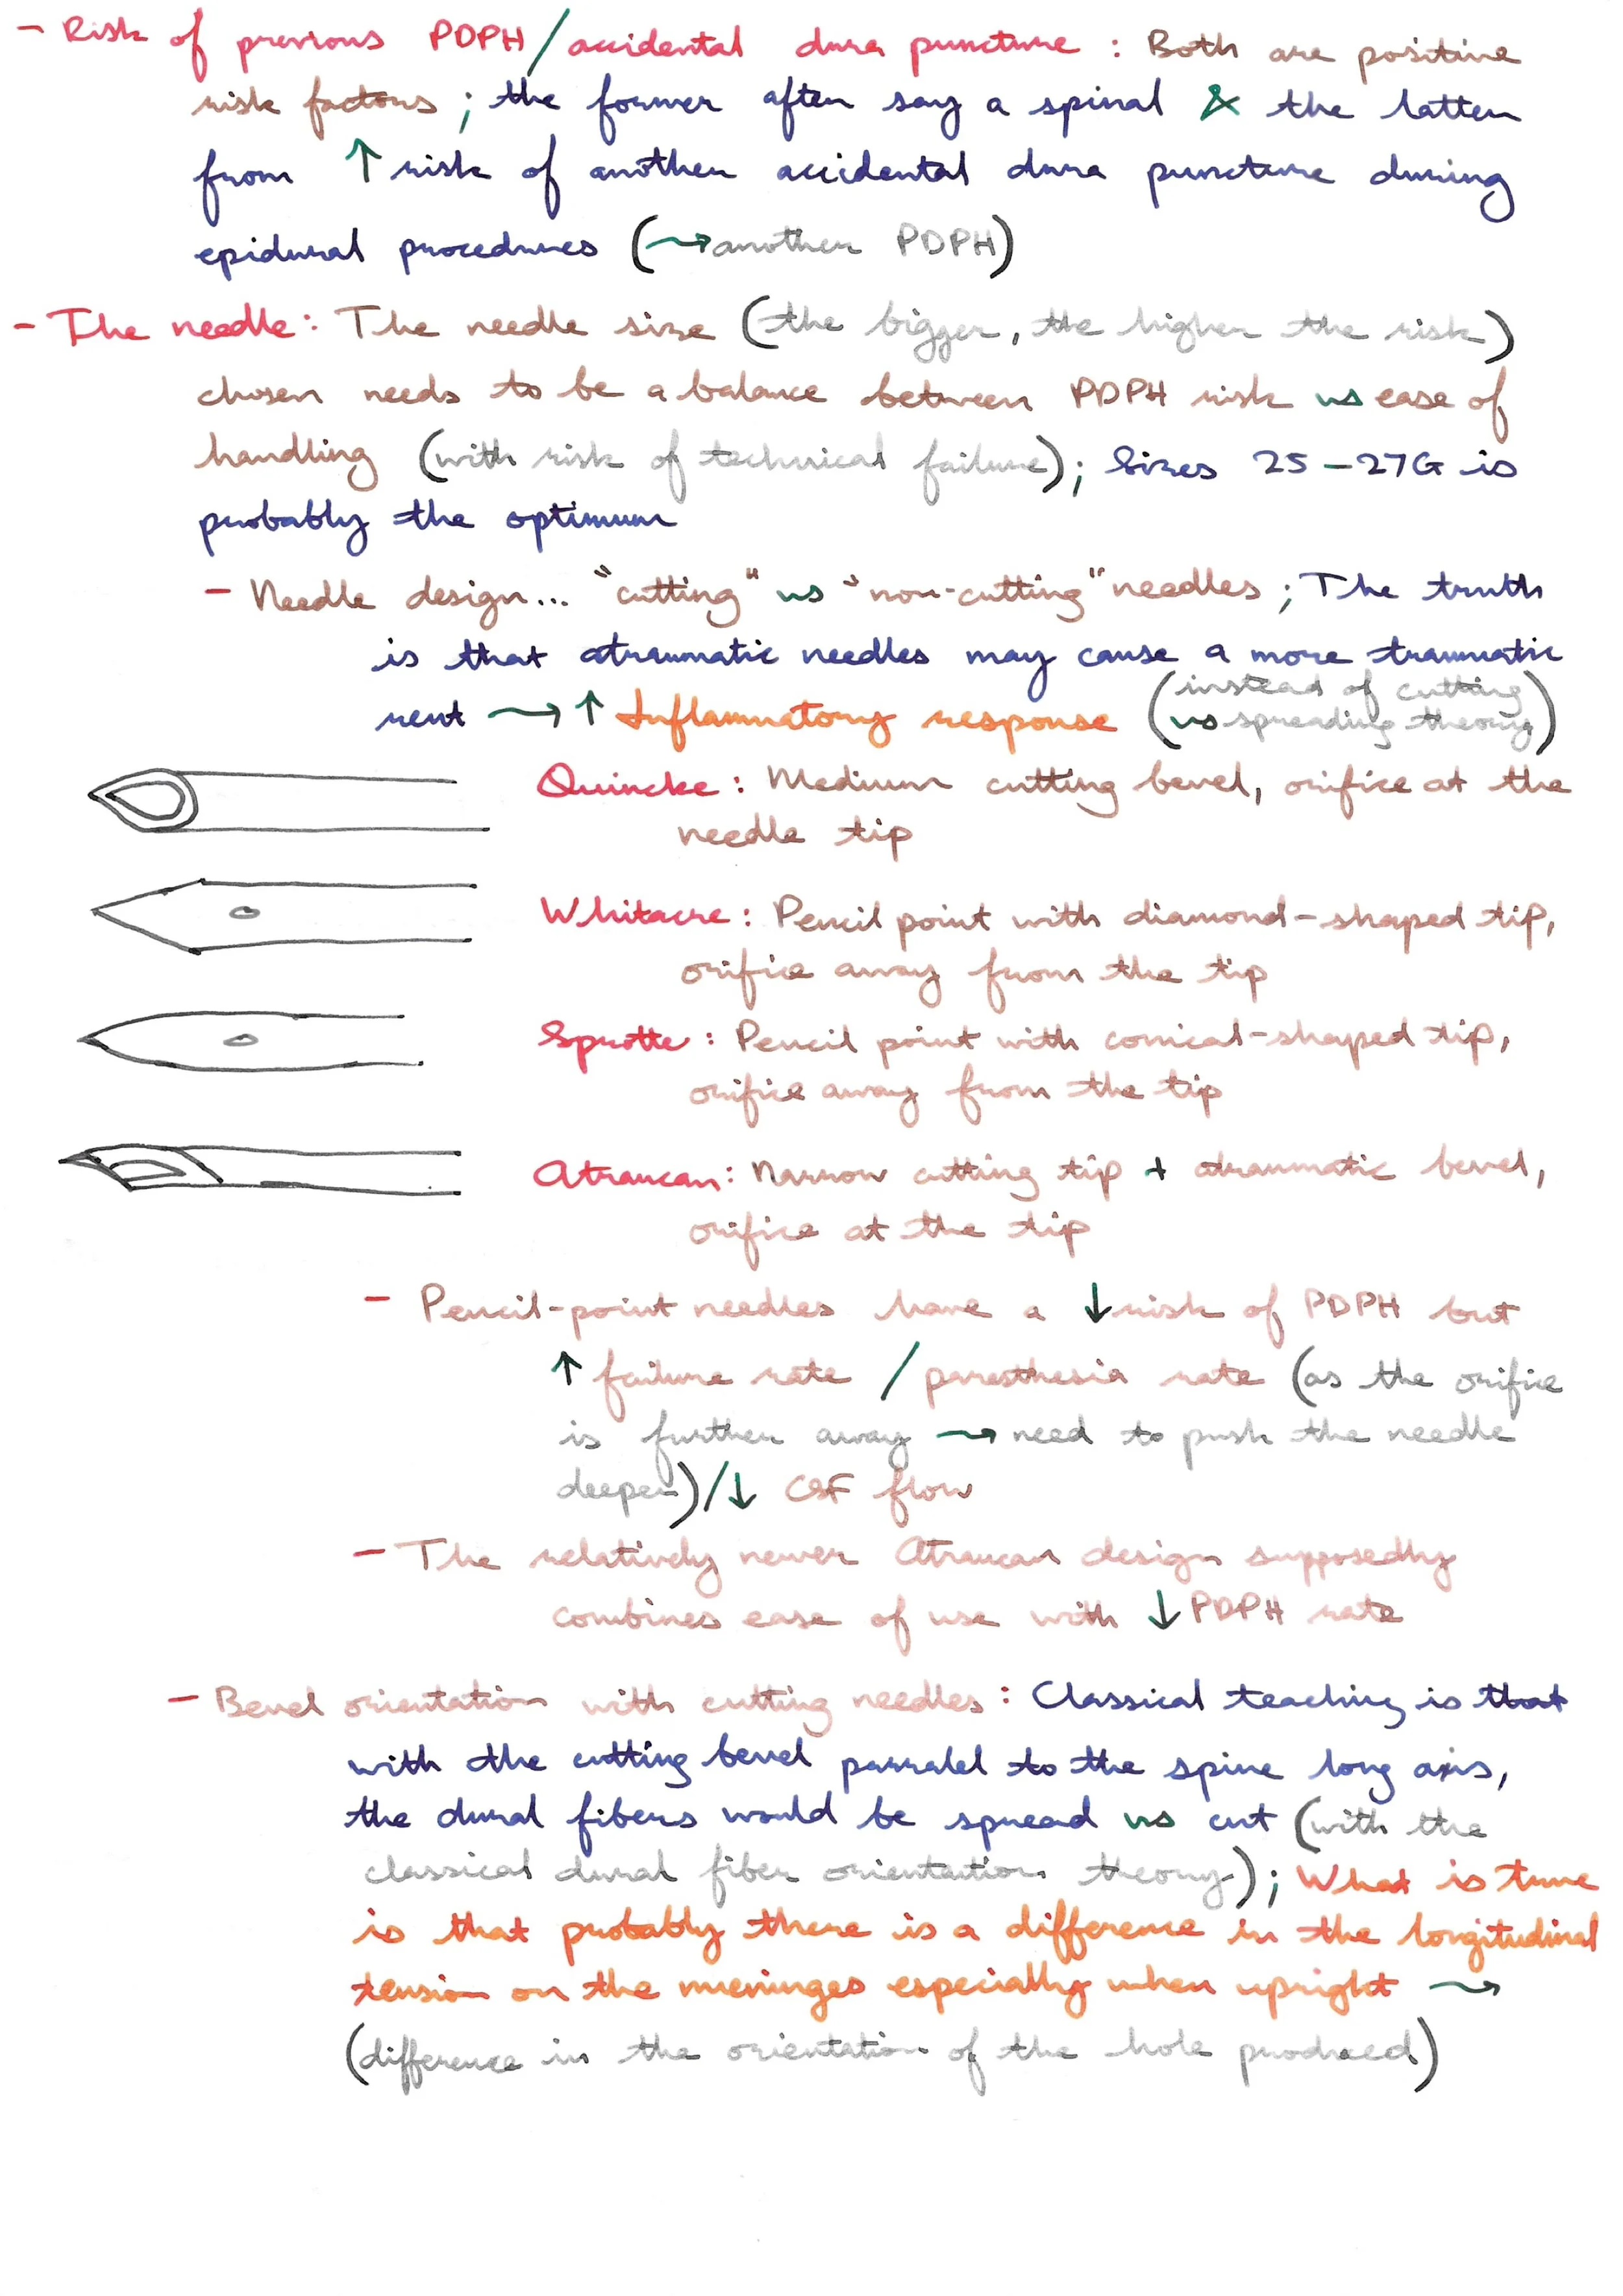 - Risk of previous PDPH/accidental dura puncture : Both are positive
risk factors ; the former after say a spinal & the latter
from ↑ risk of another accidental dura puncture during
epidural procedures (→ another PDPH)
- The needle: The needle size (the bigger, the higher the risk)
chosen needs to be a balance between PDPH risk vs ease of
handling (with risk of technical failure); Sizes 25-27G is
probably the optimum
- Needle design... "cutting" vs "non-cutting" needles ; The truth
is that atraumatic needles may cause a more traumatic
rent → ↑ Inflammatory response (instead of cutting
vs spreading theory)
Quincke : Medium cutting bevel, orifice at the
needle tip
Whitacre : Pencil point with diamond-shaped tip,
orifice away from the tip
Sprotte : Pencil point with conical-shaped tip,
orifice away from the tip
Atraucan : Narrow cutting tip + atraumatic bevel,
orifice at the tip
- Pencil-point needles have a ↓ risk of PDPH but
↑ failure rate / paresthesia rate (as the orifice
is further away → need to push the needle
deeper) / ↓ CSF flow
- The relatively newer Atraucan design supposedly
combines ease of use with ↓ PDPH rate
- Bevel orientation with cutting needles : Classical teaching is that
with the cutting bevel parralel to the spine long axis,
the dural fibers would be spread vs cut (with the
classical dural fiber orientation theory) ; What is true
is that probably there is a difference in the longitudinal
tension on the meninges especially when upright →
(difference in the orientation of the hole produced)